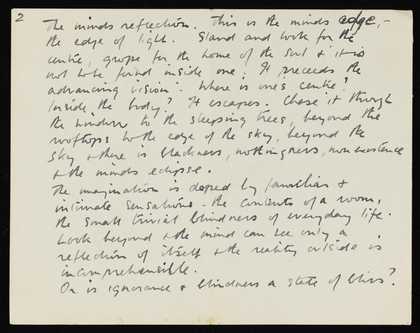 2
The minds reflection. This is the minds edge, -
the edge of light. Stand and look for the
centre, grope for the home of the soul & it is
not to be found inside one. It preceeds the
advancing vision. Where is one's centre?
Inside the body? It escapes. Chase it through
the window to the sleeping trees, beyond the
rooftops to the edge of the sky, beyond the
sky & there is blackness, nothingness, non existence
& the minds eclipse.
The imagination is doped by familiar &
intimate sensations - the contents of a room,
the small trivial blindness of everyday life.
Look beyond & the mind can see only a
reflection of itself & the reality outside is
incomprehensible.
Or is ignorance & blindness a state of bliss?